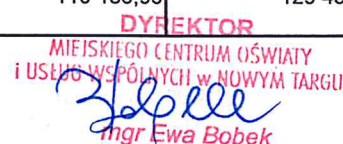 DYREKTOR
MIEJSKIEGO CENTRUM OŚWIATY
i USŁUG WSPÓLNYCH w NOWYM TARGU
mgr Ewa Bobek